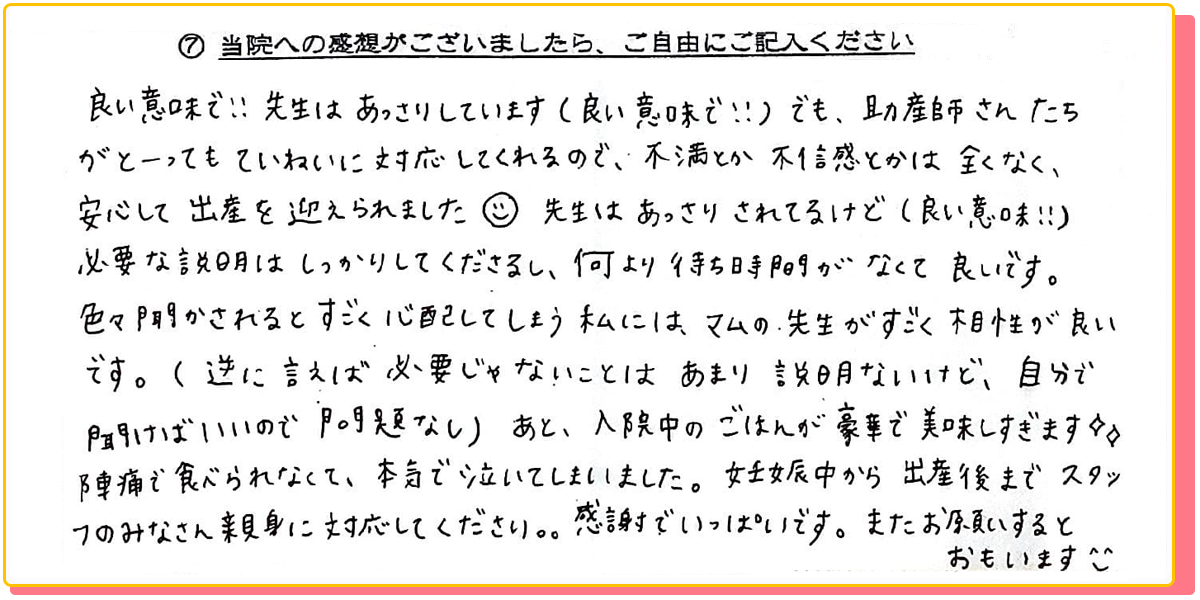 ⑦ 当院への感想がございましたら、ご自由にご記入ください
良い意味で!! 先生は あっさりしています (良い意味で!!) でも、助産師さんたち
がとーっても ていねいに 対応してくれるので、不満とか 不信感とかは 全くなく、
安心して 出産を 迎えられました☺ 先生は あっさり されてるけど (良い意味!!)
必要な説明は しっかりしてくださるし、何より 待ち時間が なくて 良いです。
色々聞かされると すごく心配してしまう 私には、マムの先生がすごく 相性が良い
です。( 逆に 言えば 必要じゃないことは あまり 説明ないけど、自分で
聞けばいいので 問題なし) あと、入院中の ごはんが 豪華で 美味しすぎます✧✧
陣痛で 食べられなくて、本気で泣いてしまいました。妊娠中から 出産後まで スタッ
フのみなさん親身に 対応してくださり。。感謝でいっぱいです。またお願いすると
おもいます^^